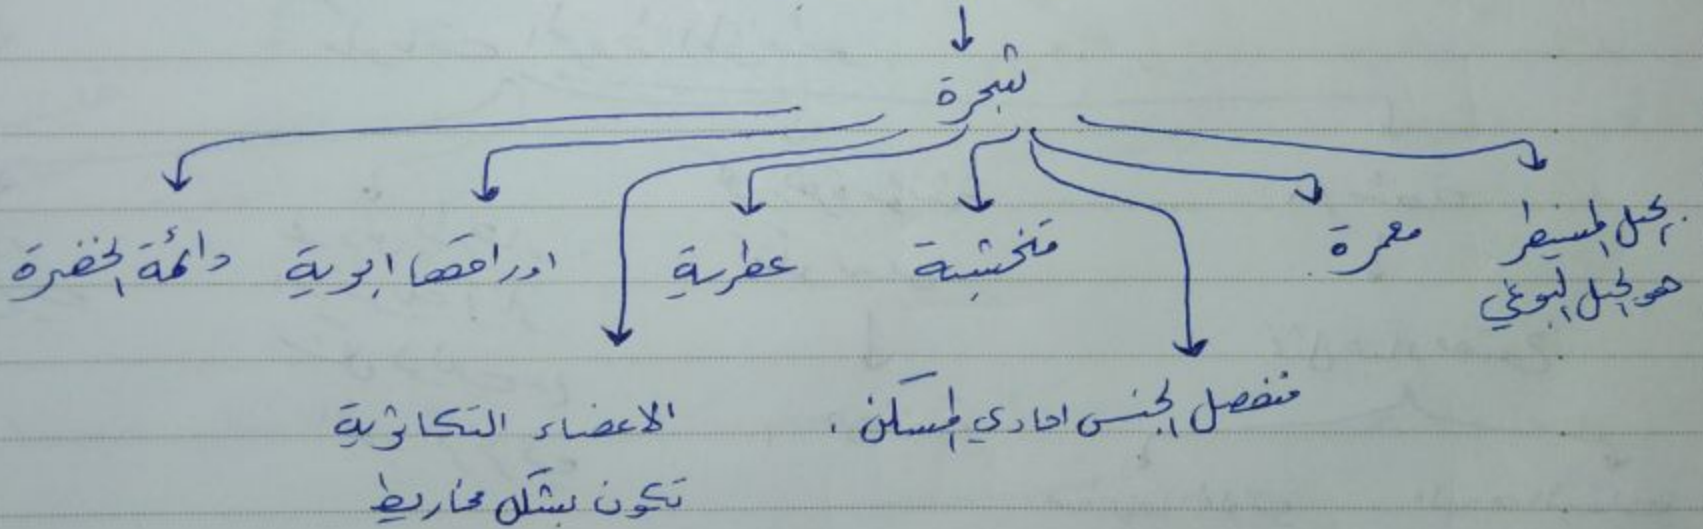 شجرة
الجيل المسيطر
هو الجيل البوغي
معمرة
متخشبة
عطرية
اوراقها ابرية
دائمة الخضرة
منفصل الجنس احادي المسكن .
الاعضاء التكاثرية
تكون بشكل مخاريط